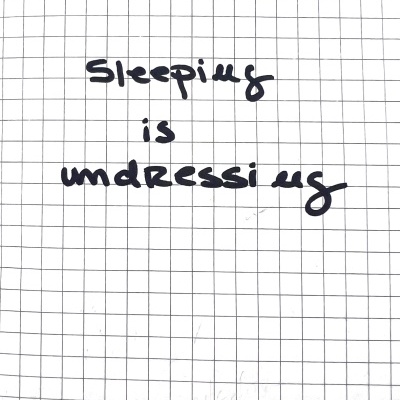 Sleeping
is
undressing